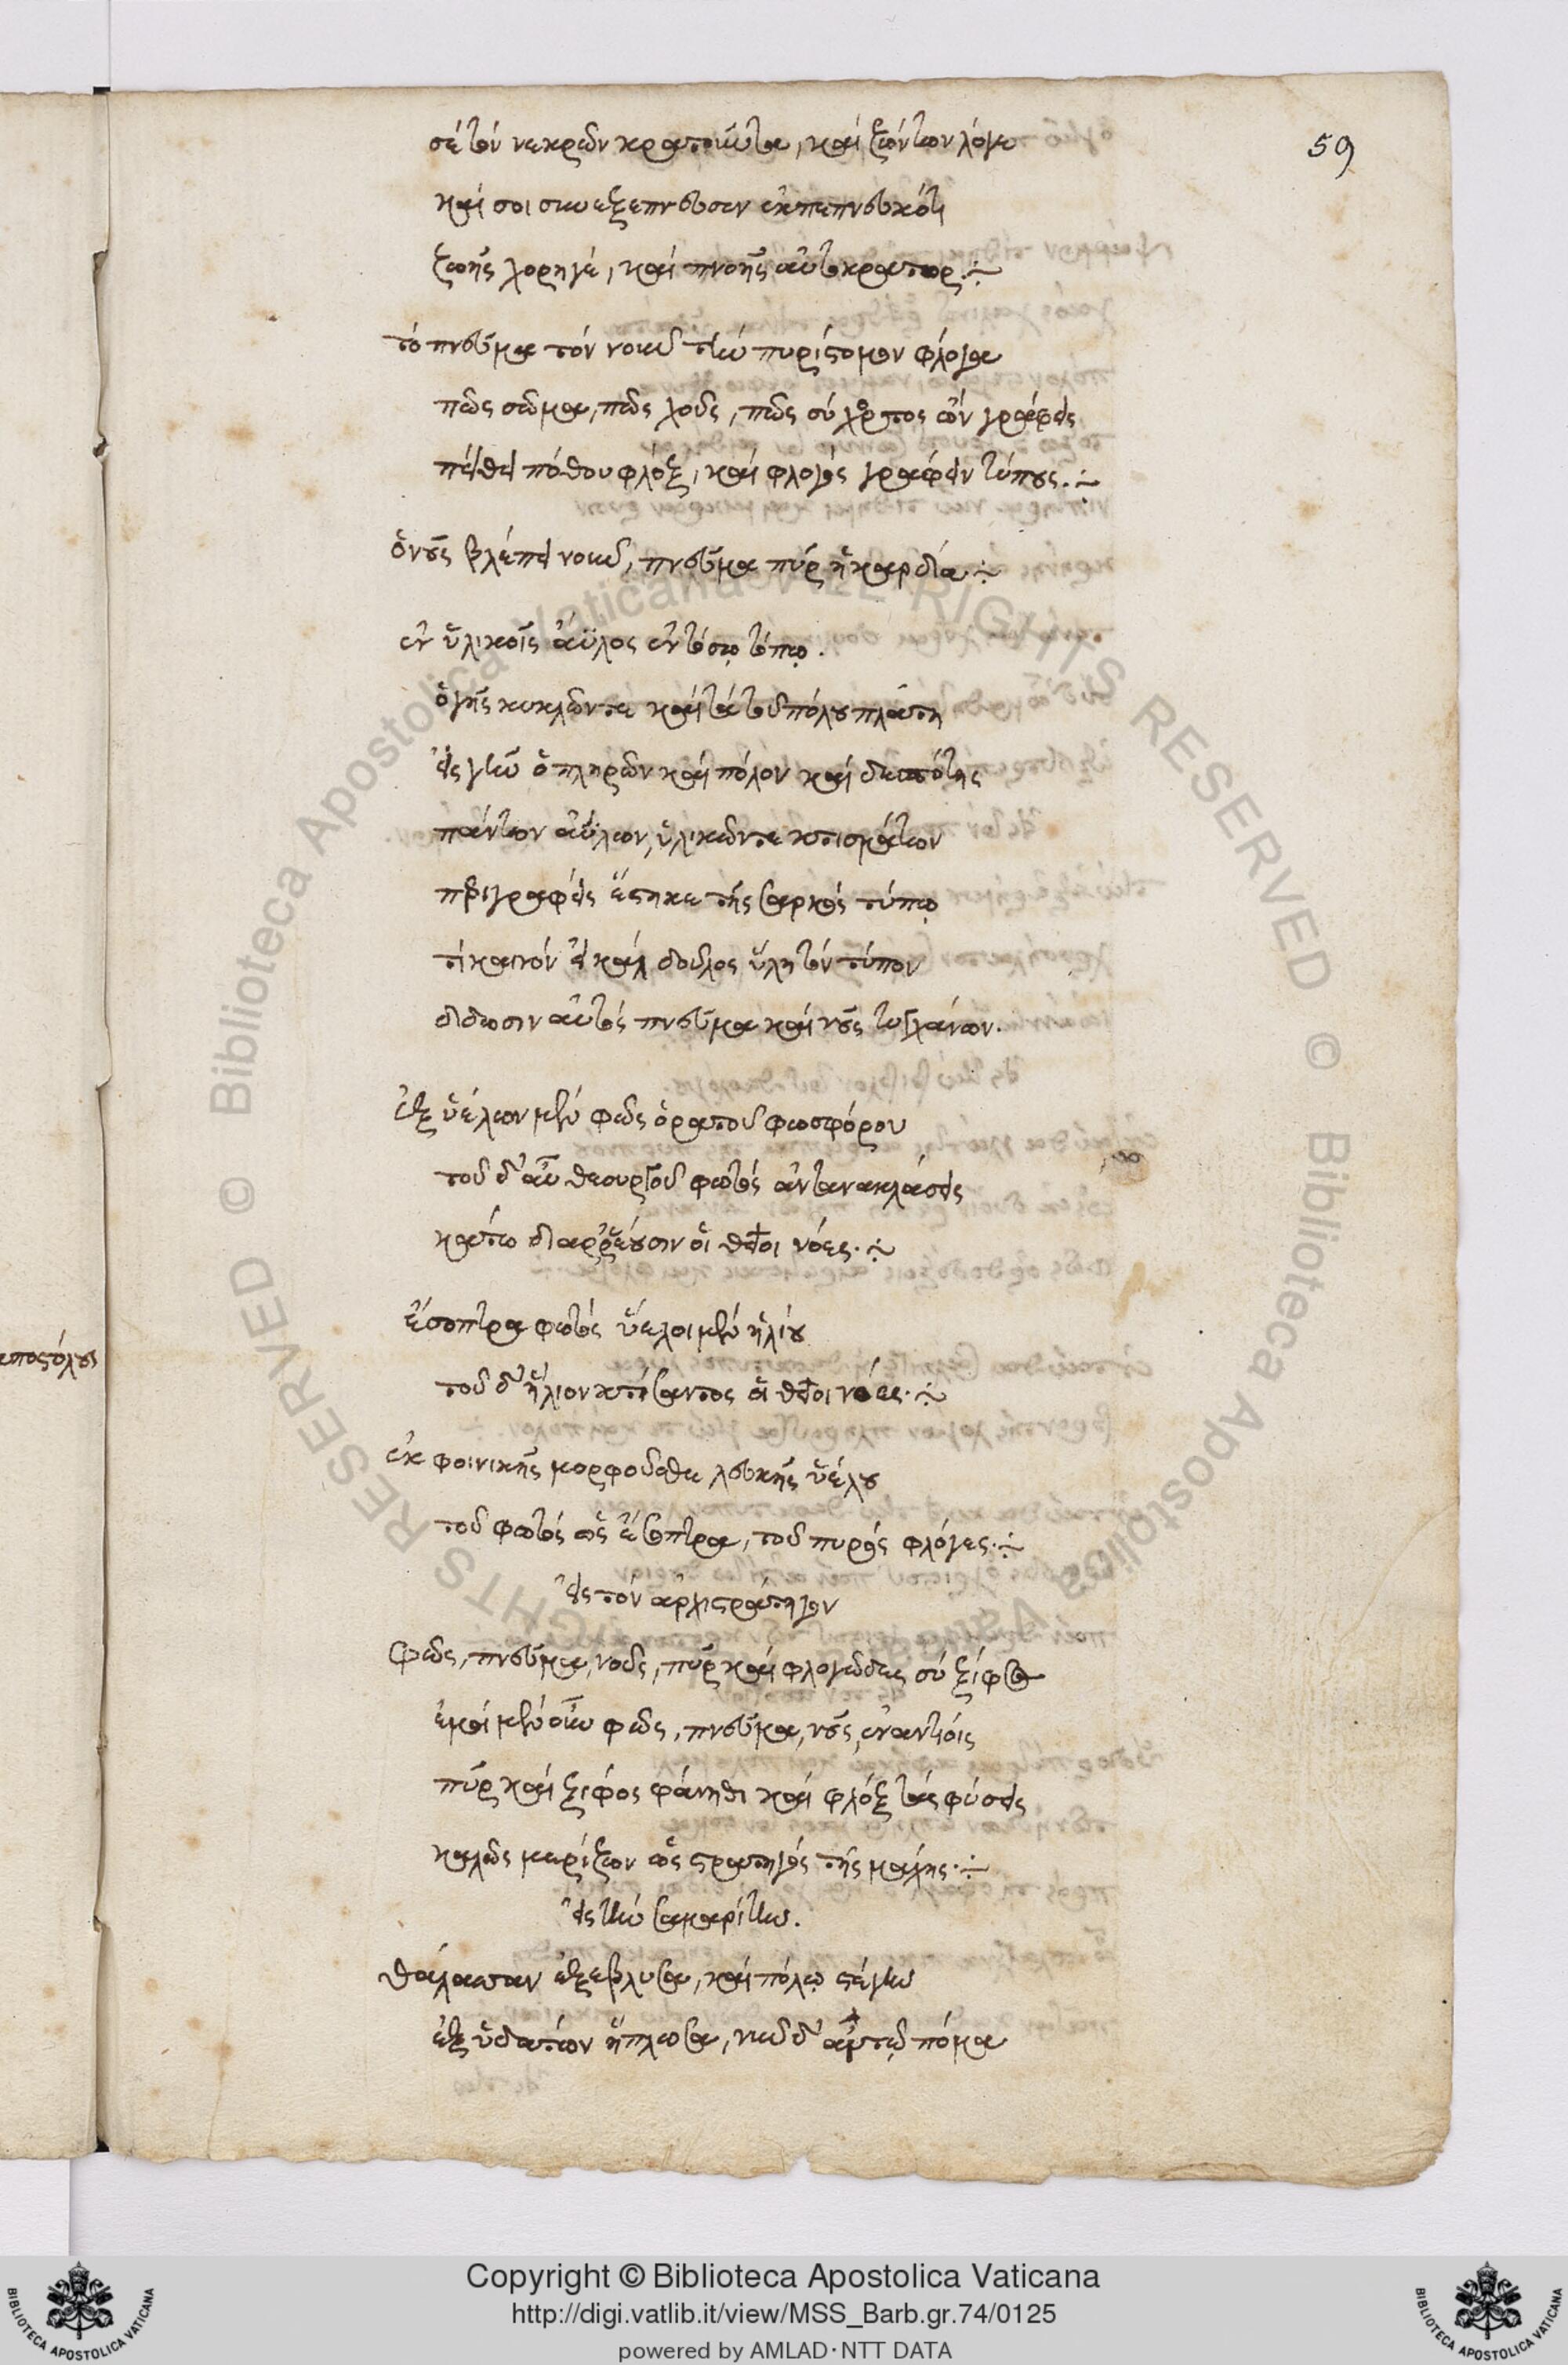 59
σὲ τὸν νεκρῶν κρατοῦντα, καὶ ζώντων λόγε
καί σοι συνεξέπνευσεν ἐκπεπνευκότι
ζωῆς χορηγὲ, καὶ πνοῆς αὐτοκράτορ·
τὸ πνεῦμα τὸν νοῦν τὴν πυρίστομον φλόγα
πῶς σῶμα, πῶς χοῦς, πῶς σὺ χόρτος ὢν γράφεις
πείθει πόθου φλὸξ, καὶ φλογὸς γράφειν τύπους.
ὁ νοῦς βλέπει νοῦν, πνεῦμα πῦρ ἡ καρδία·
ἐν ὑλικοῖς ἄϋλος ἐν τόσῳ τόπῳ.
ὁ γῆς κυκλῶν τε καὶ τὰ τοῦ πόλου πλάτη
εἷς γοῦν ὁ πληρῶν καὶ πόλον καὶ δεσπότης
πάντων ἀΰλων, ὑλικῶν τε κτισμάτων
περιγραφεὶς ἕστηκε τῆς σαρκὸς τύπῳ
τί καινὸν εἰ καὶ δοῦλος ὕλῃ τὸν τύπον
δίδωσιν αὐτὸς πνεῦμα καὶ νοῦς τυγχάνων.
ἐξ ὑέλων μὲν φῶς ὁρατοῦ φωσφόρου
τοῦ δ' αὖ θεουργοῦ φωτὸς ἀντανακλάσεις
κάτω διαρρέουσιν οἱ θεῖοι νόες·
ἔσοπτρα φωτὸς ὕελοι μὲν ἡλίου
τοῦ δ' ἥλιον κτίσαντος οἱ θεῖοι νόες·
ἐκ φοινικῆς μορφοῦσθε λευκῆς ὑέλου
τοῦ φωτὸς ὡς ἔσοπτρα, τοῦ πυρὸς φλόγες·
εἰς τὸν ἀρχιστράτηγον
Φῶς, πνεῦμα, νοῦς, πῦρ καὶ φλογῶδες σὺ ξίφος
ἐμοὶ μὲν οὖν φῶς, πνεῦμα, νοῦς, ἐναντίοις
πῦρ καὶ ξίφος φάνηθι καὶ φλὸξ τὰς φύσεις
καλῶς μερίζων ὡς στρατηγὸς τῆς μάχης·
εἰς τὴν σαμαρίτιν.
θάλατταν ἐξέβλυσα, καὶ πόλῳ στέγην
ἐξ ὑδάτων ἥπλωσα, νῦν δ' αἰτῶ πόμα
ἀποστόλου
Copyright © Biblioteca Apostolica Vaticana
http://digi.vatlib.it/view/MSS_Barb.gr.74/0125
powered by AMLAD·NTT DATA
BIBLIOTECA APOSTOLICA VATICANA
BIBLIOTECA APOSTOLICA VATICANA
© Biblioteca Apostolica Vaticana ALL RIGHTS RESERVED © Biblioteca Apostolica Vaticana ALL RIGHTS RESERVED